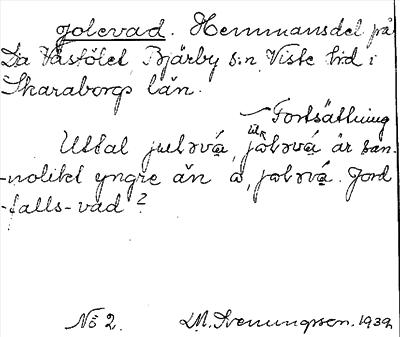 Jolevad. Hemmansdel på
Da Västölet Bjärby s:n Viste hd i
Skaraborgs län.
Fortsättning
Uttal juləvá, jɷləvá är san-
-nolikt yngre än ɷ, jɷləvá. Jord
-falls-vad?
No 2. LM. Svenungsson. 1939